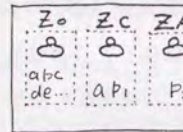 Zo ZC
abc
de... a p₁ p